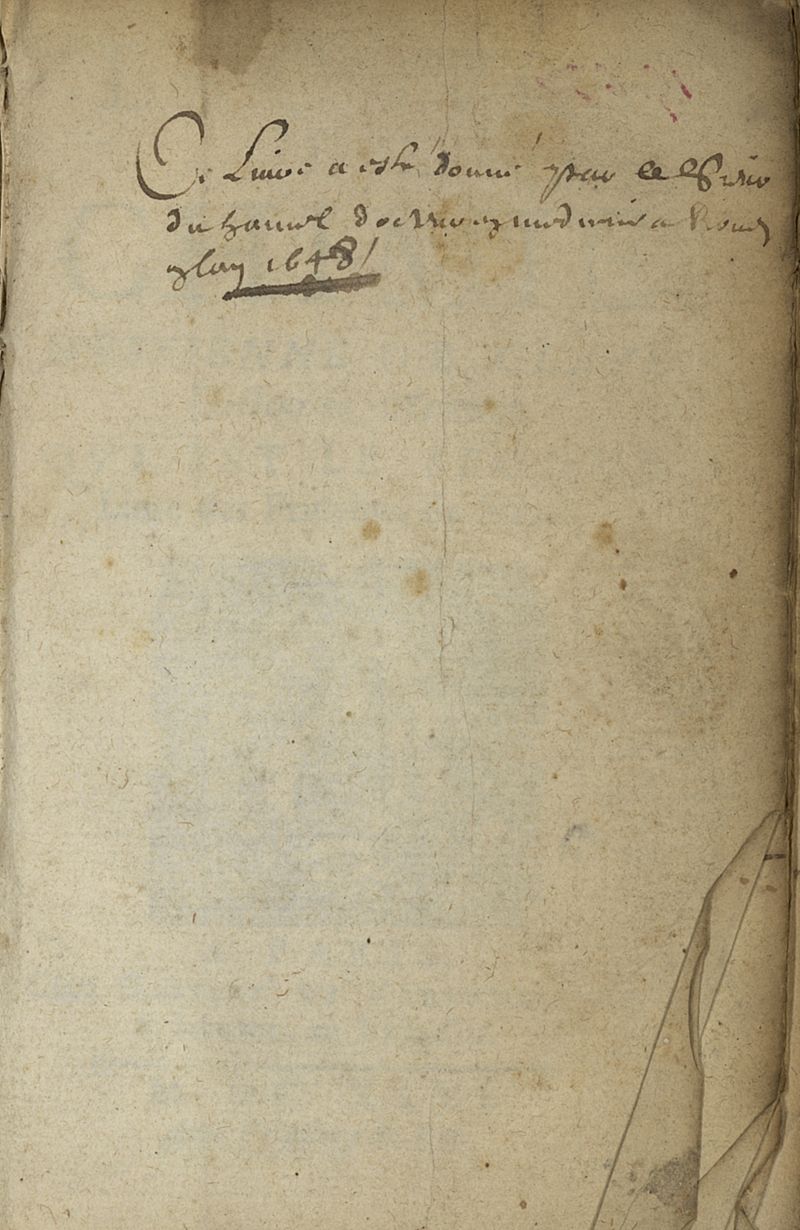 Ce Liure a esté donné par le Sieur
du hamel docteur en medecine a Rouen
1648